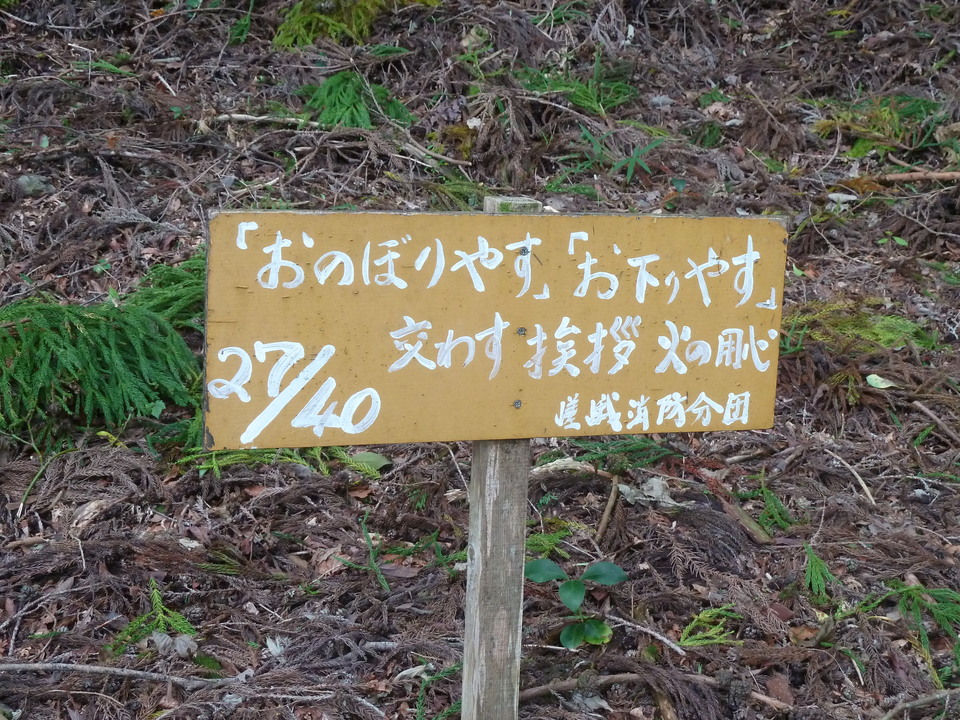 「おのぼりやす」「お下りやす」
交わす挨拶 火の用心
27/40
嵯峨消防分団